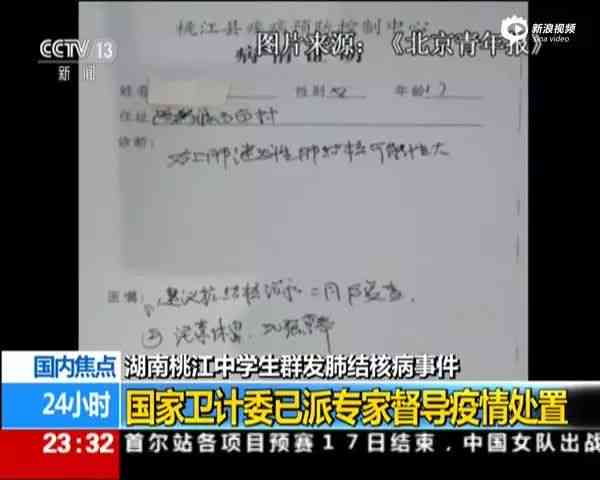 CCTV 13
新闻
新浪视频
Sina video
桃江县疾病预防控制中心
图片来源：《北京青年报》
姓名
性别 女
年龄 17
住址
诊断：
右上肺继发性肺结核可能性大
医嘱：
建议抗结核治疗二月后复查
国内焦点
湖南桃江中学生群发肺结核病事件
24小时
国家卫计委已派专家督导疫情处置
23:32
首尔站各项目预赛17日结束，中国女队出战